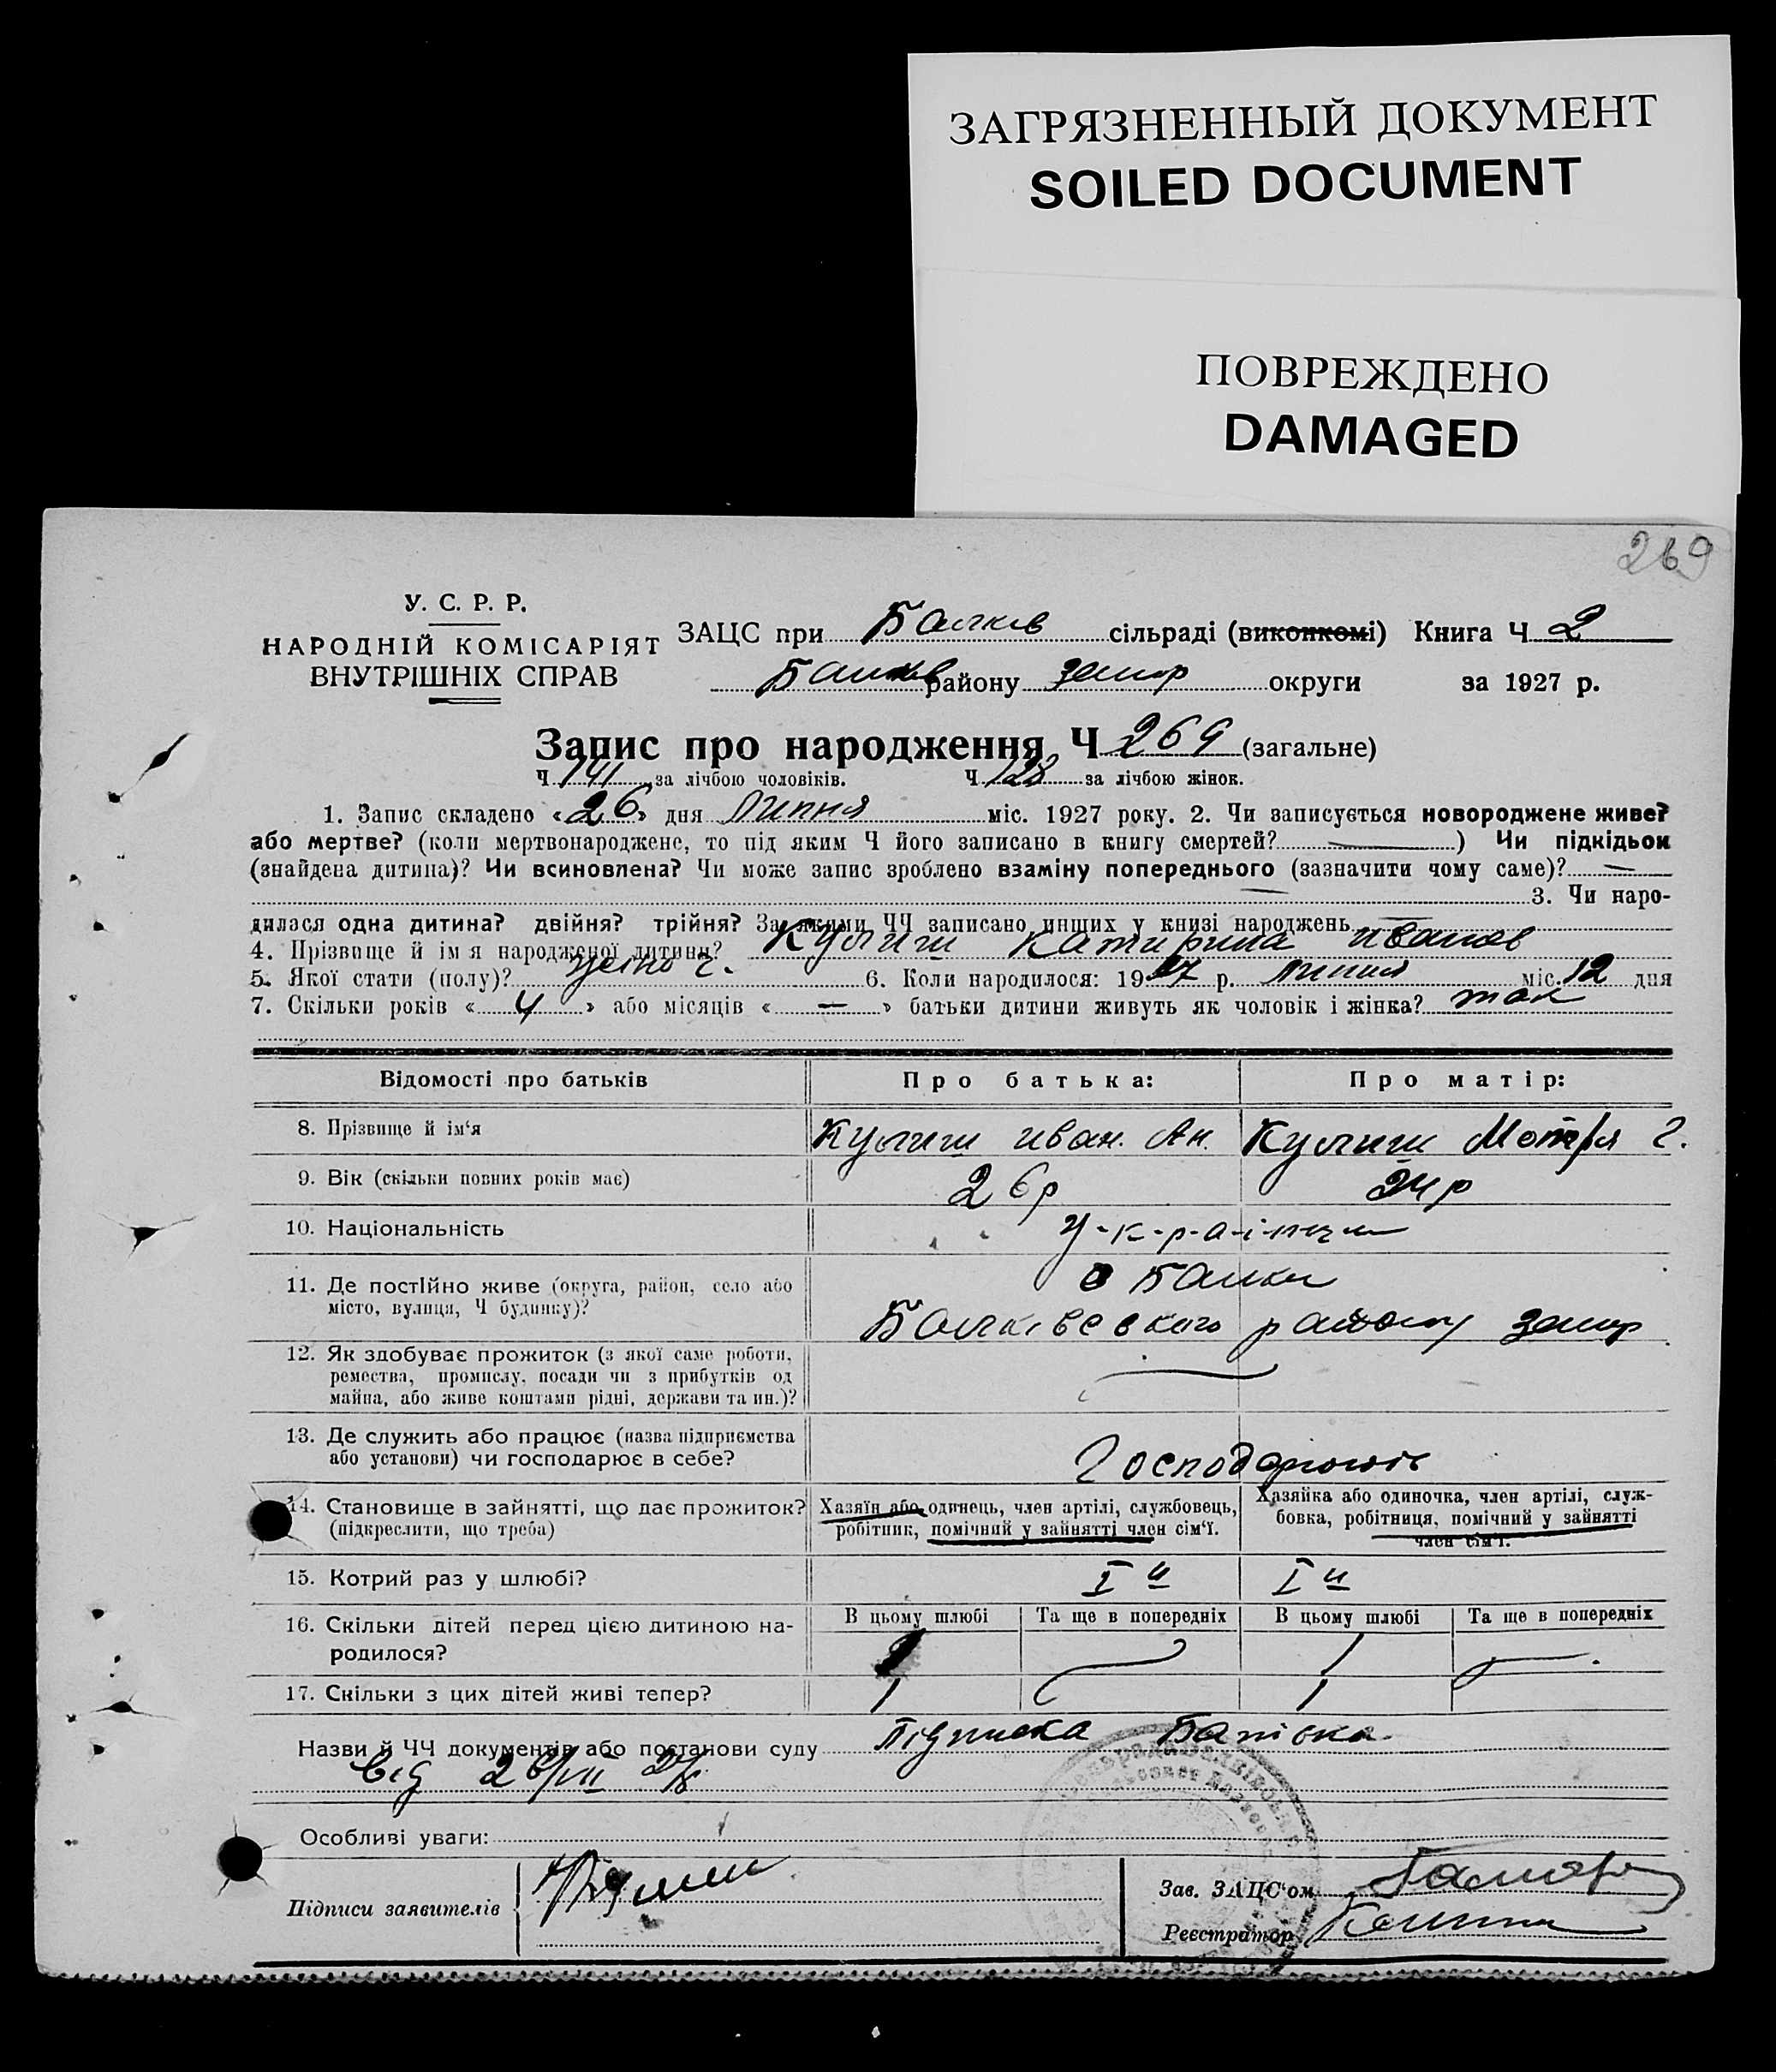 ЗАГРЯЗНЕННЫЙ ДОКУМЕНТ
SOILED DOCUMENT
ПОВРЕЖДЕНО
DAMAGED
269
У. С. Р. Р.
НАРОДНІЙ КОМІСАРІЯТ
ВНУТРІШНІХ СПРАВ
ЗАЦС при Балків сільраді (виконкомі) Книга Ч 2
Балків району Запор округи за 1927 р.
Запис про народження Ч 269 (загальне)
Ч 141 за лічбою чоловіків. Ч 128 за лічбою жінок.
1. Запис складено «26» дня липня міс. 1927 року. 2. Чи записується новороджене живе?
або мертве? (коли мертвонароджене, то під яким Ч його записано в книгу смертей? —) Чи підкідьок
(знайдена дитина)? Чи всиновлена? Чи може запис зроблено взаміну попереднього (зазначити чому саме)? —
— 3. Чи наро-
дилася одна дитина? двійня? трійня? За якими ЧЧ записано инших у книзі народжень —
4. Прізвище й ім я народженої дитини? Кулиш Катирина Иванов
5. Якої стати (полу)? жіноч. 6. Коли народилося: 1927 р. липня міс. 12 дня
7. Скільки років «4» або місяців «—» батьки дитини живуть як чоловік і жінка? так
Відомості про батьків Про батька: Про матір:
8. Прізвище й ім‘я Кулиш Иван. Ан. Кулиш Мотря Г.
9. Вік (скільки повних років має) 26 р 24 р
10. Національність У-к-р-а-ї-нци
11. Де постійно живе (округа, район, село або с Балки
місто, вулиця, Ч будинку)? Балківського району Запор.
12. Як здобуває прожиток (з якої саме роботи,
ремества, промислу, посади чи з прибутків од
майна, або живе коштами рідні, держави та ин.)? —
13. Де служить або працює (назва підприємства
або установи) чи господарює в себе? Господарюють
14. Становище в зайнятті, що дає прожиток?
(підкреслити, що треба)
Хазяїн або одинець, член артілі, службовець,
робітник, помічний у зайнятті член сім‘ї.
Хазяйка або одиночка, член артілі, служ-
бовка, робітниця, помічний у зайнятті
член сім‘ї.
15. Котрий раз у шлюбі? І й І й
16. Скільки дітей перед цією дитиною на-
родилося?
В цьому шлюбі Та ще в попередніх В цьому шлюбі Та ще в попередніх
1 — 1 —
17. Скільки з цих дітей живі тепер? 1 — 1 —
Назви й ЧЧ документів або постанови суду Підписка Батька
від 26/VII 27 р.
Особливі уваги:
Підписи заявителів
Зав. ЗАЦС‘ом
Реєстратор